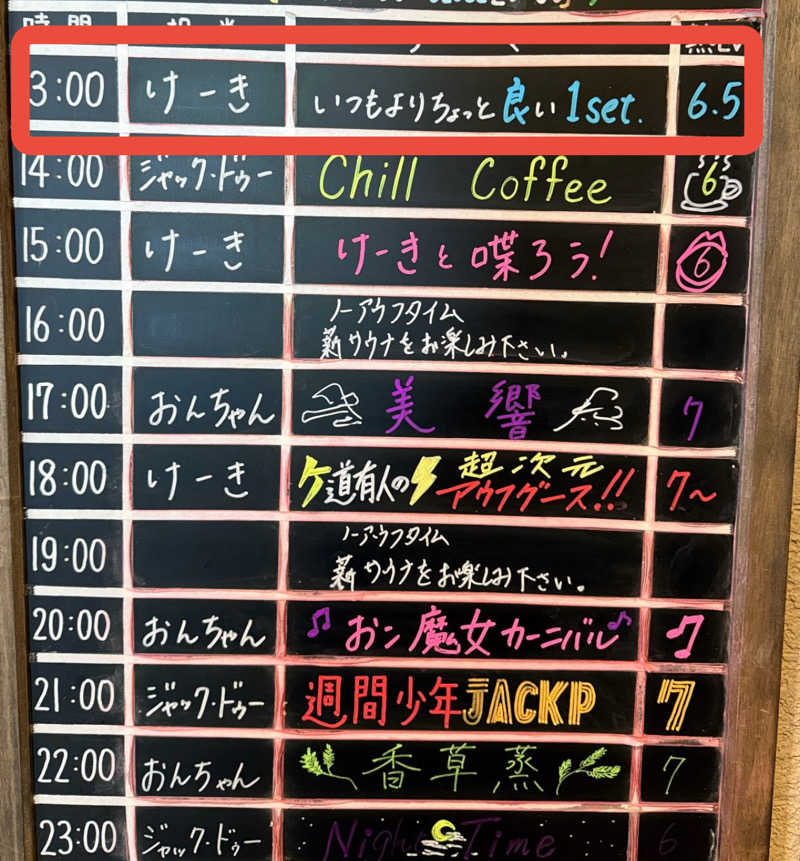 時間
3:00 けーき いつもよりちょっと良い1set. 6.5
14:00 ジャック・ドゥー Chill Coffee 6
15:00 けーき けーきと喋ろう! 6
16:00 ノーアウフタイム
薪サウナをお楽しみ下さい。
17:00 おんちゃん 美 響 7
18:00 けーき ケ道有人の 超次元
アウフグース!! 7〜
19:00 ノーアウフタイム
薪サウナをお楽しみ下さい。
20:00 おんちゃん おン魔女カーニバル
21:00 ジャック・ドゥー 週間少年JACKP 7
22:00 おんちゃん 香草蒸 7
23:00 ジャック・ドゥー Night Time 6